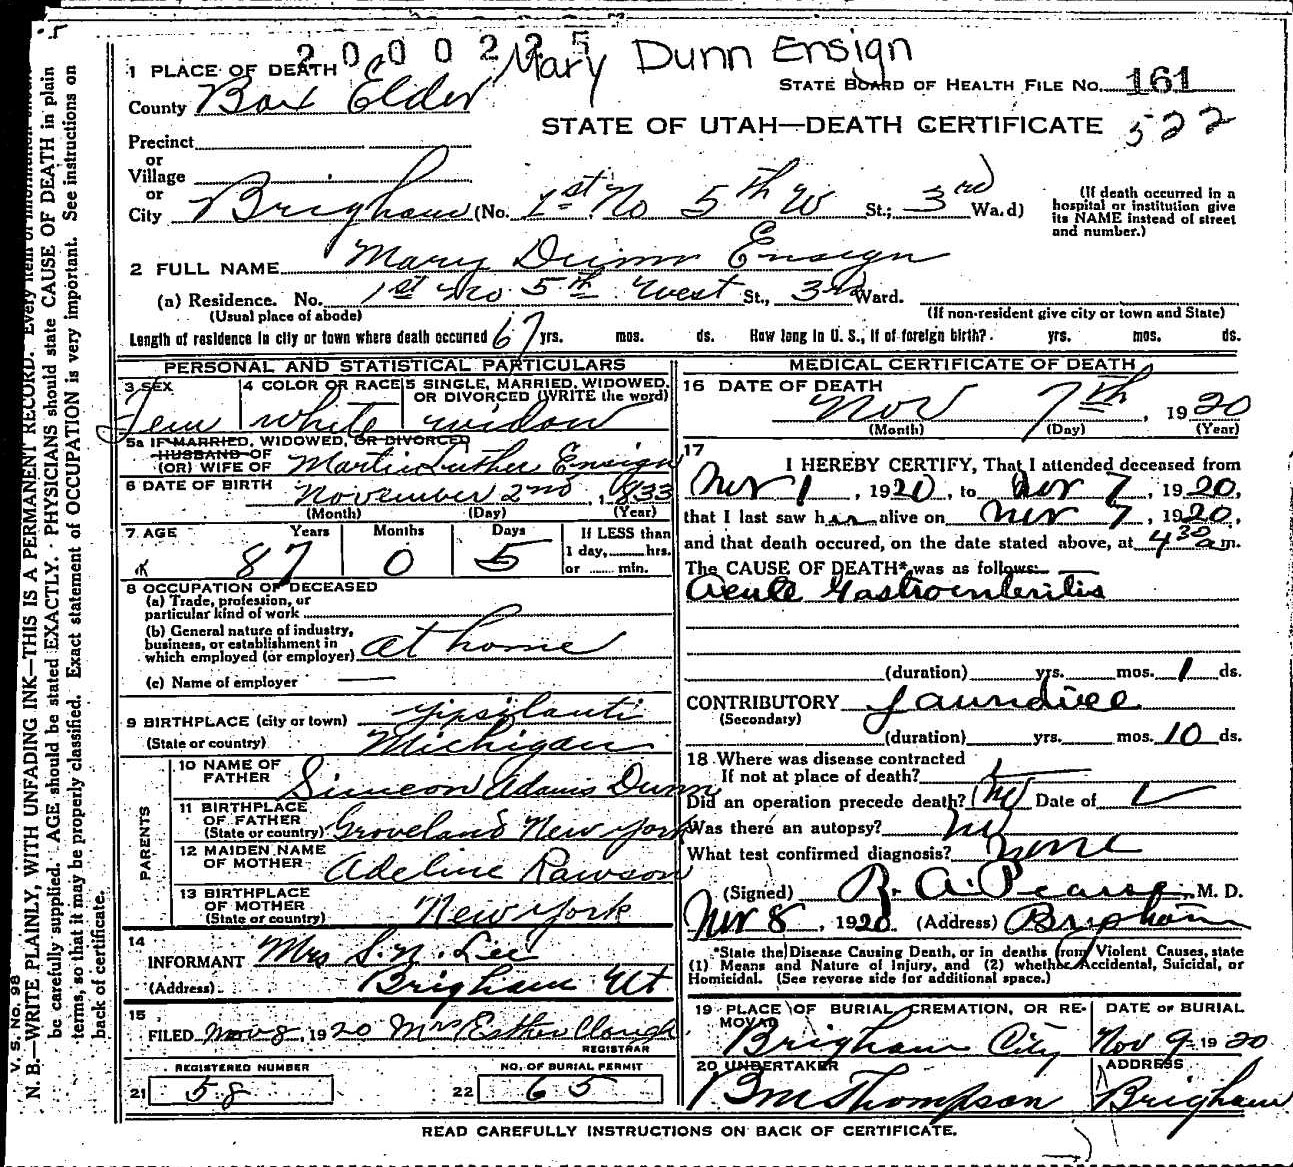 2000225 Mary Dunn Ensign
1 PLACE OF DEATH
STATE BOARD OF HEALTH FILE No. 161
County Box Elder
STATE OF UTAH—DEATH CERTIFICATE 522
Precinct
or
Village
or
City Brigham (No. 1st No 5th W St.; 3rd Ward)
(If death occurred in a
hospital or institution give
its NAME instead of street
and number.)
2 FULL NAME Mary Dunn Ensign
(a) Residence. No. 1st No. 5th West St., 3rd Ward.
(Usual place of abode) (If non-resident give city or town and State)
Length of residence in city or town where death occurred 67 yrs. mos. ds. How long in U. S., if of foreign birth? yrs. mos. ds.
PERSONAL AND STATISTICAL PARTICULARS
3 SEX
Fem
4 COLOR OR RACE
white
5 SINGLE, MARRIED, WIDOWED,
OR DIVORCED (WRITE the word)
widow
5a IF MARRIED, WIDOWED, OR DIVORCED
HUSBAND OF
(OR) WIFE OF Martin Luther Ensign
6 DATE OF BIRTH November 2nd, 1833
(Month) (Day) (Year)
7 AGE Years Months Days
87 0 5
If LESS than
1 day, hrs.
or min.
8 OCCUPATION OF DECEASED
(a) Trade, profession, or
particular kind of work
(b) General nature of industry,
business, or establishment in
which employed (or employer) at home
(c) Name of employer
9 BIRTHPLACE (city or town) Ypsilanti
(State or country) Michigan
PARENTS
10 NAME OF
FATHER Simeon Adams Dunn
11 BIRTHPLACE
OF FATHER
(State or country) Groveland New York
12 MAIDEN NAME
OF MOTHER Adeline Rawson
13 BIRTHPLACE
OF MOTHER
(State or country) New York
14
INFORMANT Mrs S. N. Lee
(Address) Brigham Ut
15
FILED Nov 8, 1920 Mrs Esther Clough
REGISTRAR
REGISTERED NUMBER
21 58
NO. OF BURIAL PERMIT
22 65
MEDICAL CERTIFICATE OF DEATH
16 DATE OF DEATH
Nov 7th, 1920
(Month) (Day) (Year)
17
I HEREBY CERTIFY, That I attended deceased from
Nov 1, 1920, to Nov 7, 1920,
that I last saw her alive on Nov 7, 1920,
and that death occured, on the date stated above, at 4 30 a m.
The CAUSE OF DEATH* was as follows:
Acute Gastroenteritis
(duration) yrs. mos. 1 ds.
CONTRIBUTORY Jaundice
(Secondary)
(duration) yrs. mos. 10 ds.
18 Where was disease contracted
If not at place of death?
Did an operation precede death? no Date of
Was there an autopsy? no
What test confirmed diagnosis? none
(Signed) R. A. Pearse, M. D.
Nov 8, 1920 (Address) Brigham
*State the Disease Causing Death, or in deaths from Violent Causes, state
(1) Means and Nature of Injury, and (2) whether Accidental, Suicidal, or
Homicidal. (See reverse side for additional space.)
19 PLACE OF BURIAL, CREMATION, OR RE-
MOVAL
Brigham City
DATE OF BURIAL
Nov 9 1920
20 UNDERTAKER
B M Thompson
ADDRESS
Brigham
READ CAREFULLY INSTRUCTIONS ON BACK OF CERTIFICATE.
V. S. No. 98
N. B.—WRITE PLAINLY, WITH UNFADING INK—THIS IS A PERMANENT RECORD. Every item of information should
be carefully supplied. AGE should be stated EXACTLY. PHYSICIANS should state CAUSE OF DEATH in plain
terms, so that it may be properly classified. Exact statement of OCCUPATION is very important. See instructions on
back of certificate.